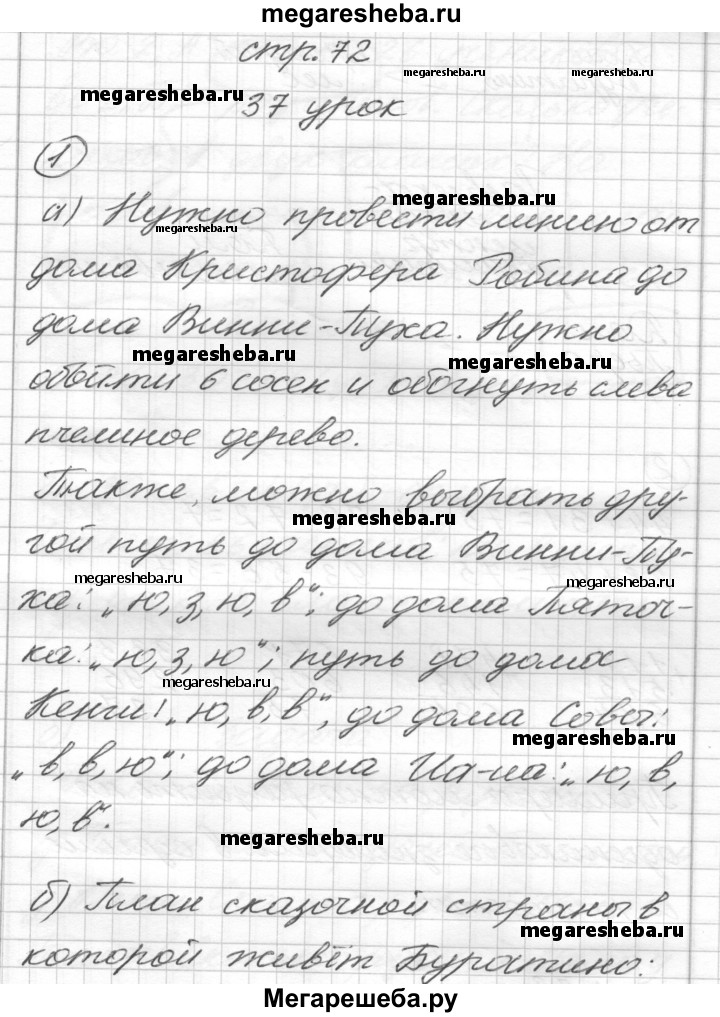 megaresheba.ru
стр. 72
megaresheba.ru megaresheba.ru
megaresheba.ru
37 урок
1
megaresheba.ru
а) Нужно провести линию от
megaresheba.ru
дома Кристофера Робина до
дома Винни-Пуха. Нужно
megaresheba.ru megaresheba.ru
обойти 6 сосен и обогнуть слева
пчелиное дерево.
Также, можно выбрать дру-
megaresheba.ru
гой путь до дома Винни-Пу-
megaresheba.ru megaresheba.ru
ха: „ю, з, ю, в“; до дома Пяточ-
ка: „ю, з, ю“; путь до дома
megaresheba.ru
Кенги: „ю, в, в“, до дома Совы:
megaresheba.ru
„в, в, ю“; до дома Иа-иа: „ю, в,
ю, в“.
megaresheba.ru
б) План сказочной страны в
megaresheba.ru
которой живёт Буратино:
Мегарешеба.ру